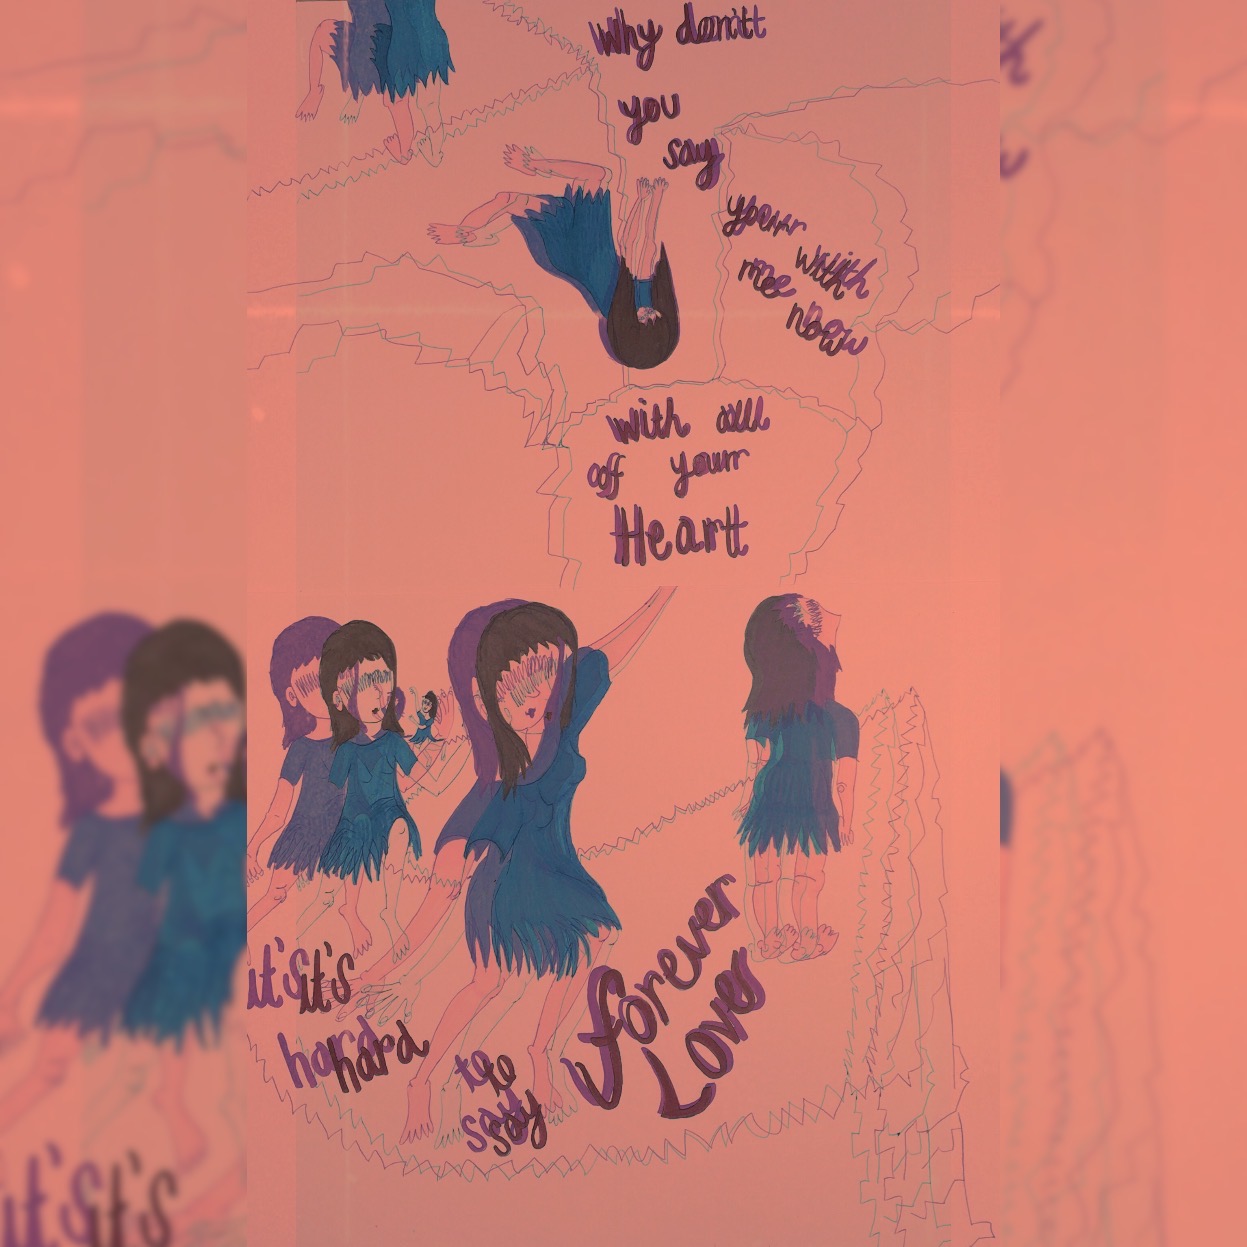 Why don't
you
say
your
with
me
now
with all
of your
Heart
it's
hard
to
say
forever
Love